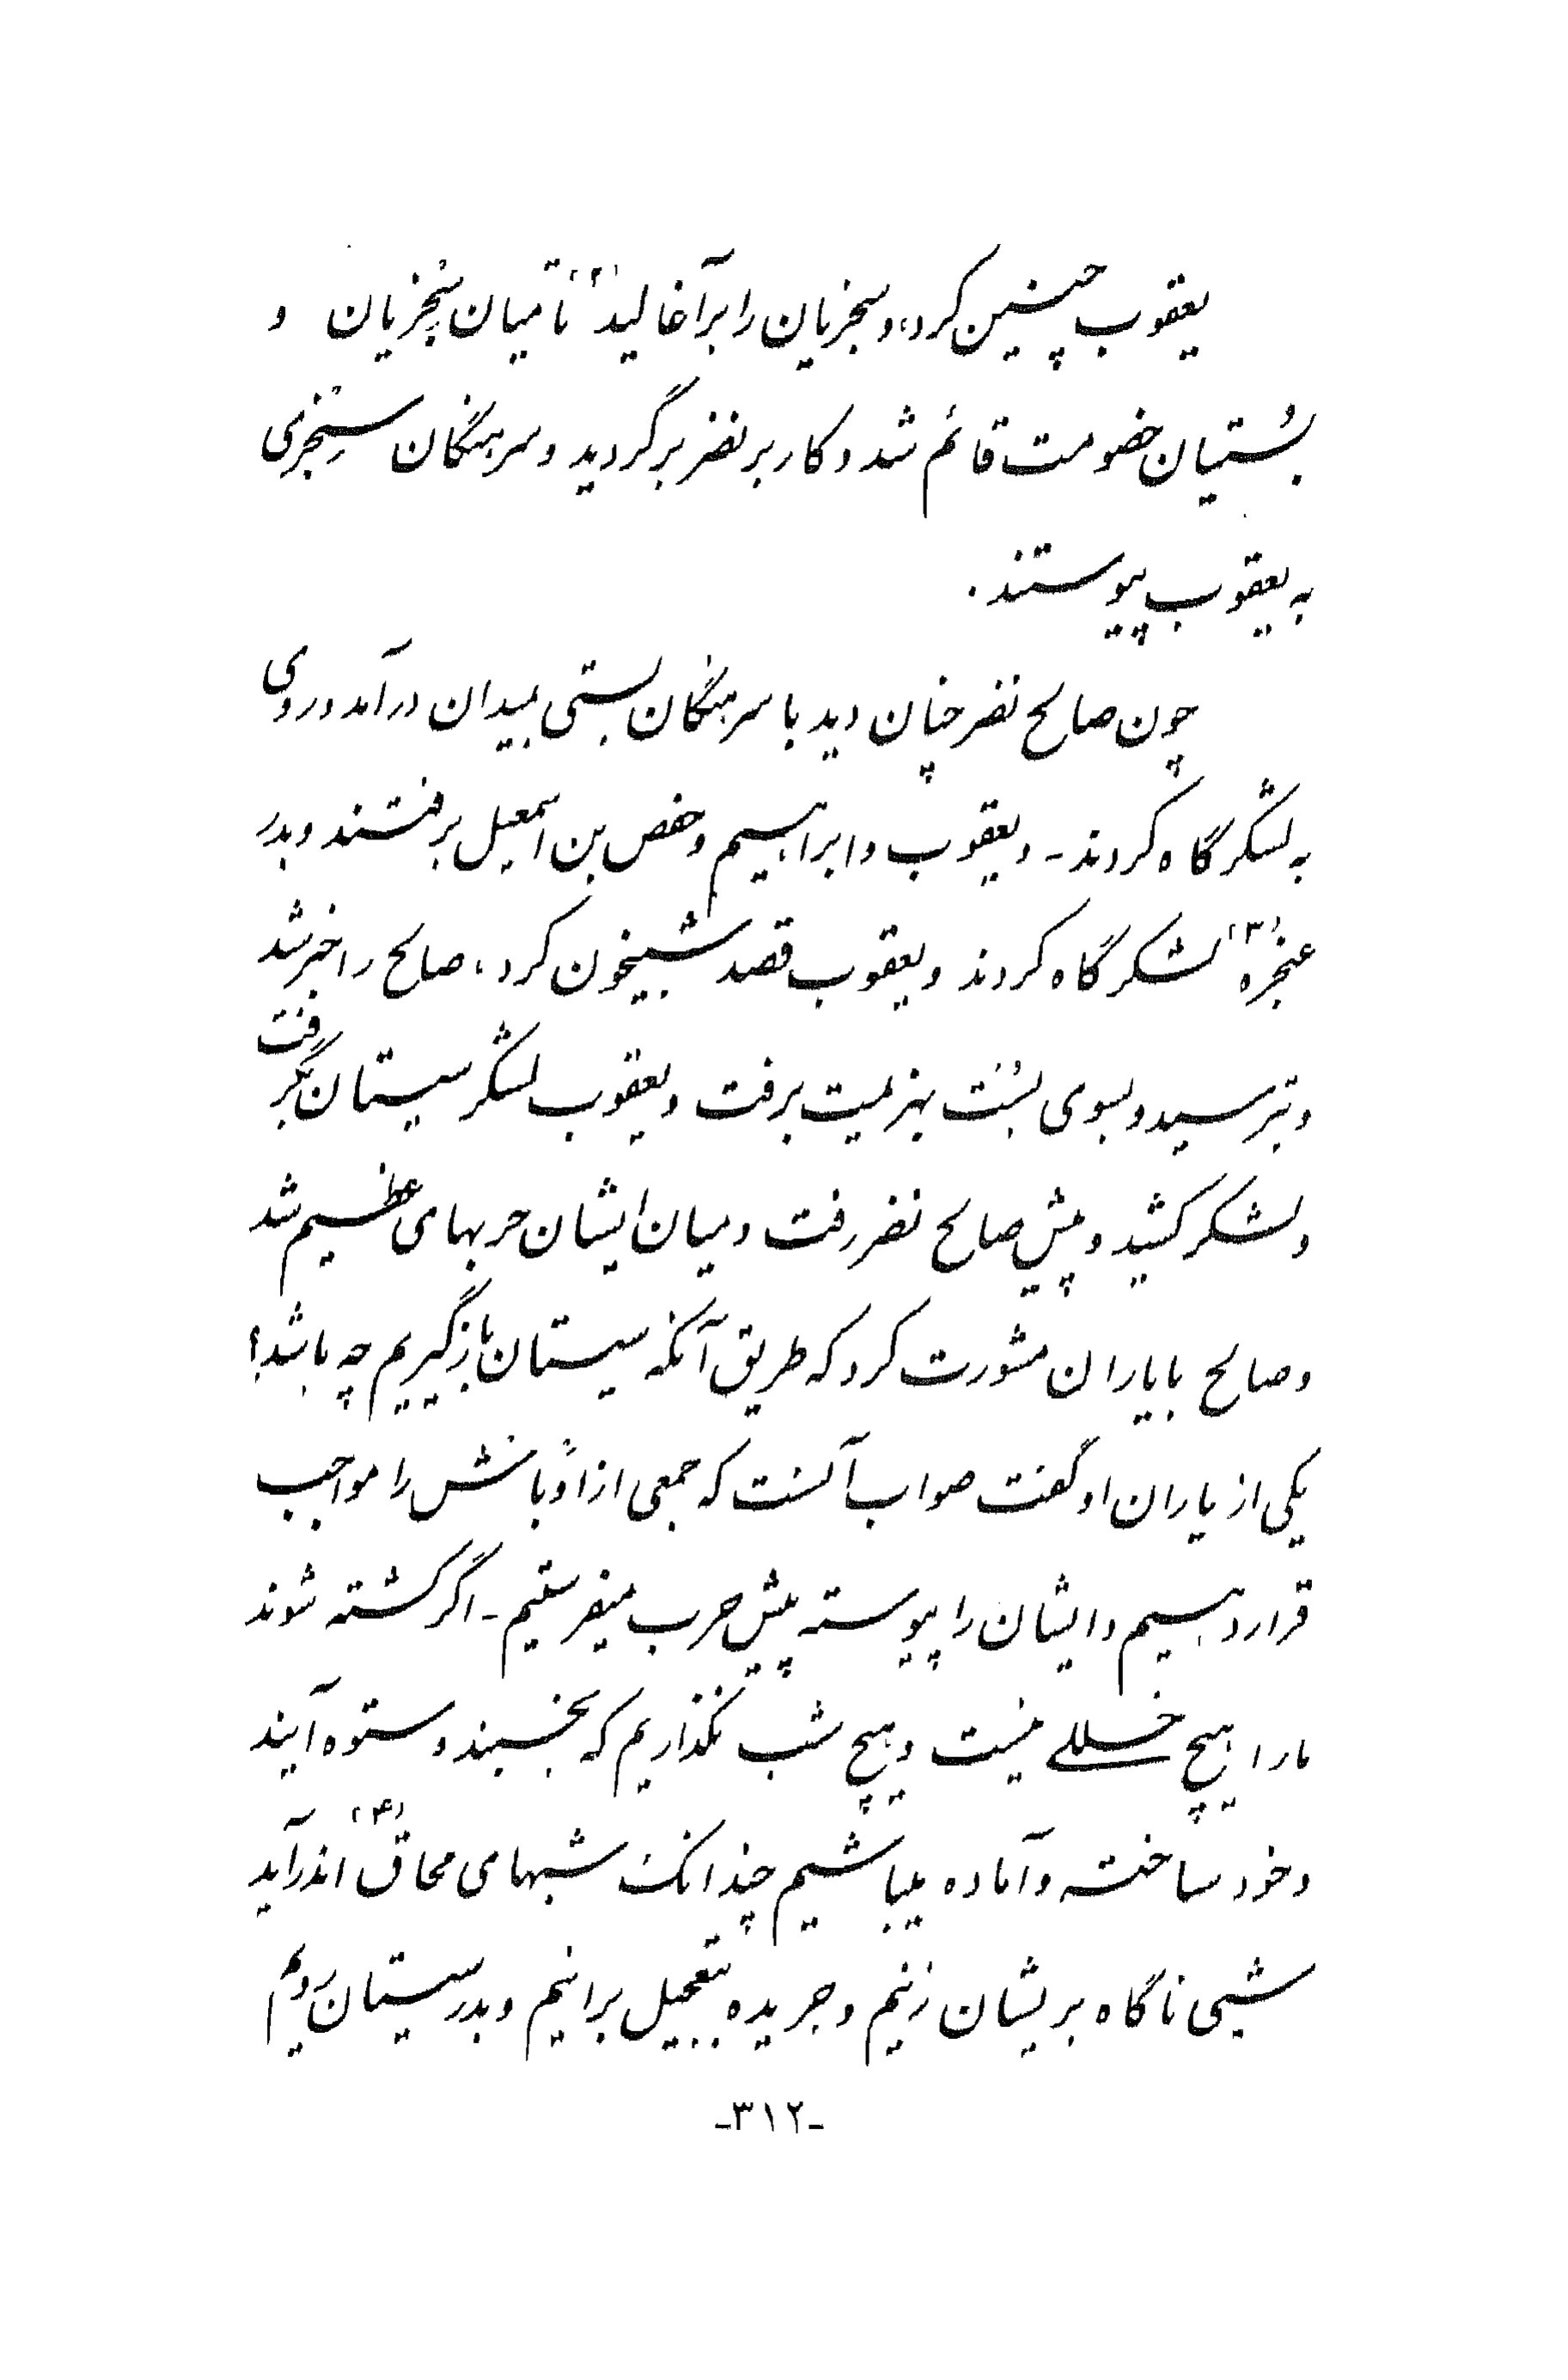 یعقوب چنین کرد، و سجزیان را برآغالید(۲) تا میان سِجْزیان و
بُستیان خصومت قائم شد و کار بر نضر برگردید و سرهنگان سِجْزی
به یعقوب پیوستند.
چون صالح نضر چنان دید با سرهنگان بستی بمیدان درآمد و روی
به لشکرگاه کردند - و یعقوب و ابراهیم و حفص بن اسمعیل برفتند و بدر
عنجره(۳) لشکرگاه کردند و یعقوب قصد شبیخون کرد، صالح را خبر شد
و بترسید و بسوی بُسْت بهزیمت برفت و یعقوب لشکر سیستان بگرفت
و لشکر کشید و پیش صالح نضر رفت و میان ایشان حربهای عظیم شد
و صالح با یاران مشورت کرد که طریق آنکه سیستان بازگیریم چه باشد؟
یکی از یاران او گفت صواب آنست که جمعی از اَوْباش را مواجب
قرار دهیم و ایشان را پیوسته پیش حرب میفرستیم - اگر کشته شوند
ما را هیچ خللی نیست و هیچ شب نگذاریم که بخسبند و ستوه آیند
و خود ساخته و آماده میباشیم چندانک شبهای محاق(۴) اندرآید
شبی ناگاه بریشان زنیم و جریده بتعجیل برانیم و بدر سیستان رویم
-۳۱۲-